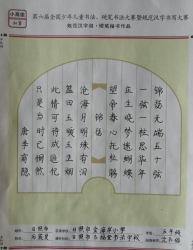 小学组
第六届全国少年儿童书法、硬笔书法大赛暨规范汉字书写大赛
规范汉字组·硬笔楷书作品
锦瑟无端五十弦
一弦一柱思华年
庄生晓梦迷蝴蝶
望帝春心托杜鹃
锦瑟
沧海月明珠有泪
蓝田日暖玉生烟
此情可待成追忆
只是当时已惘然
唐李商隐
日照市
五年级